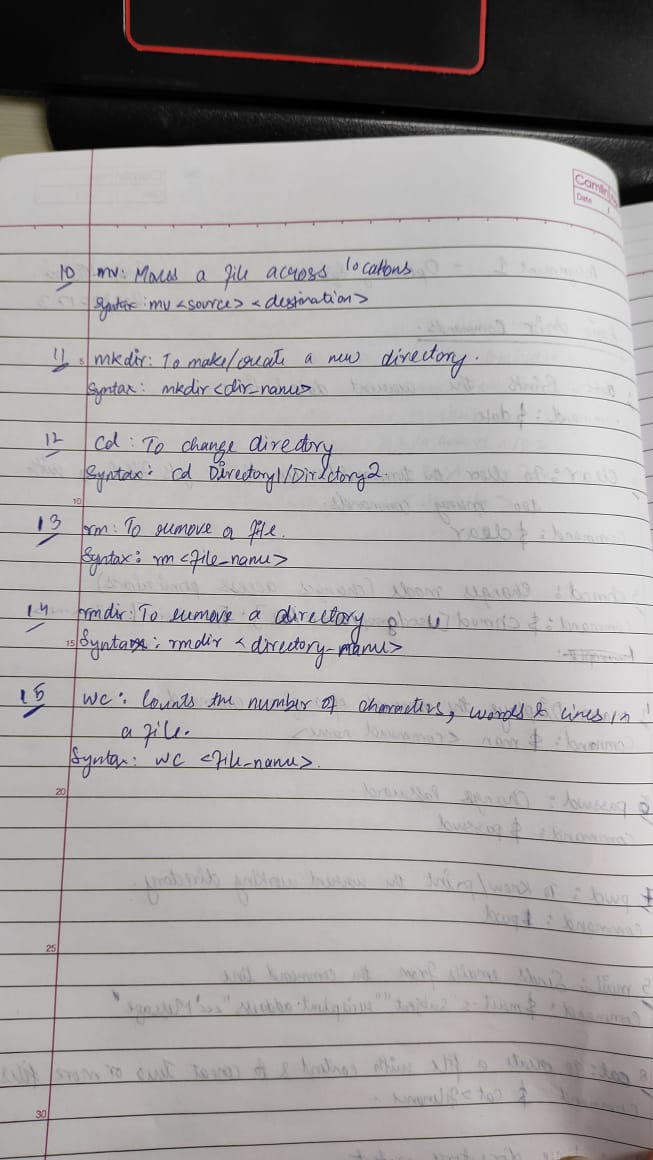 Camlin
Date
10 mv: Moves a file across locations
Syntax: mv <source> <destination>
11 mkdir: To make/create a new directory.
Syntax: mkdir <dir_name>
12 Cd: To change directory
Syntax: cd Directory1/Directory2.
13 rm: To remove a file.
Syntax: rm <file_name>
14 rmdir: To remove a directory
Syntax: rmdir <directory-name>
15 wc: Counts the number of characters, words & lines in
a file.
Syntax: wc <file_name>.
5
10
15
20
25
30